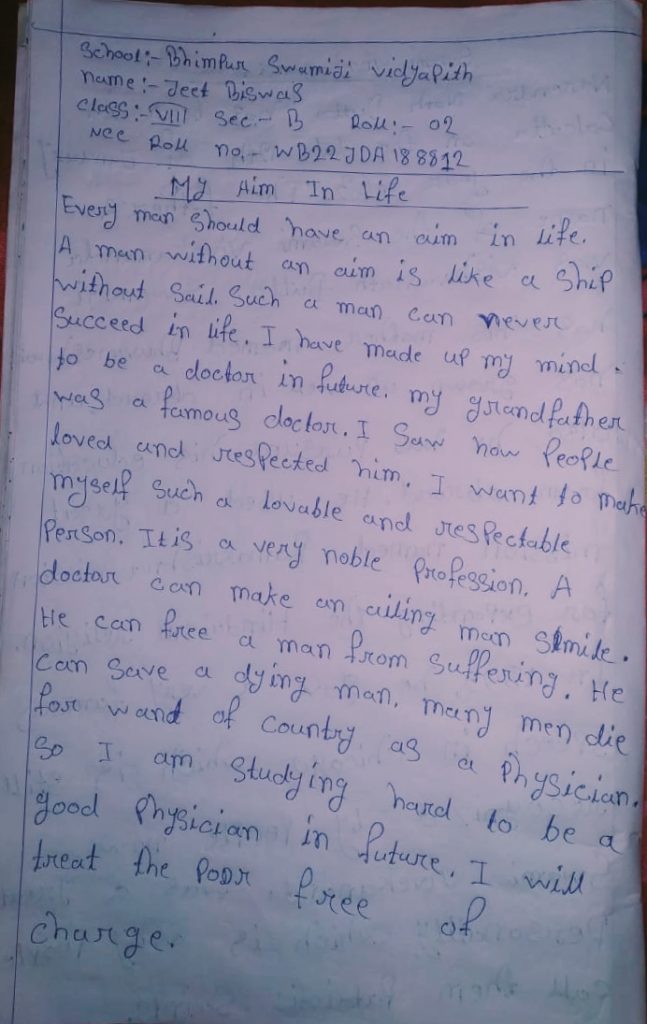 School:- Bhimpur Swamiji vidyapith
name:- Jeet Biswas
class:- VIII Sec:- B Roll:- 02
NCC Roll no,- WB22JDA188812
My Aim In Life
Every man should have an aim in life.
A man without an aim is like a ship
without sail. Such a man can never
succeed in life. I have made up my mind.
to be a doctor in future. my grandfather
was a famous doctor. I saw how people
loved and respected him. I want to make
myself such a lovable and respectable
person. It is a very noble profession. A
doctor can make an ailing man smile.
He can free a man from suffering. He
can save a dying man. many men die
for wand of country as a physician.
So I am studying hard to be a
good physician in future. I will
treat the poor free of
charge.